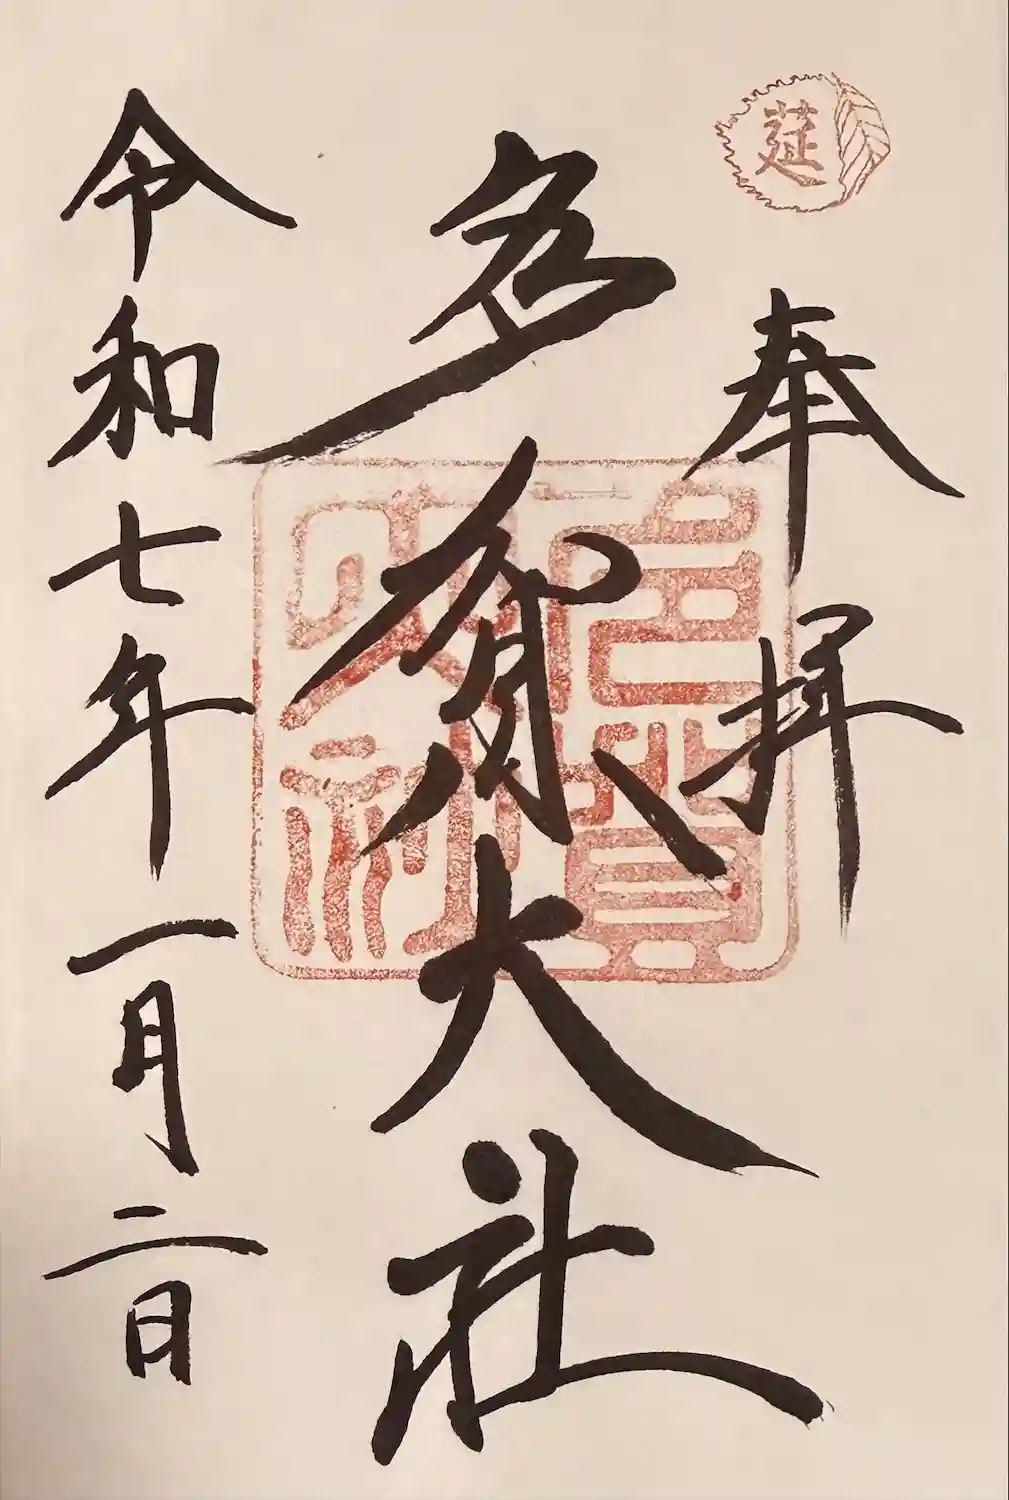 莚
奉拝
多賀大社
多賀大社
令和七年一月二日